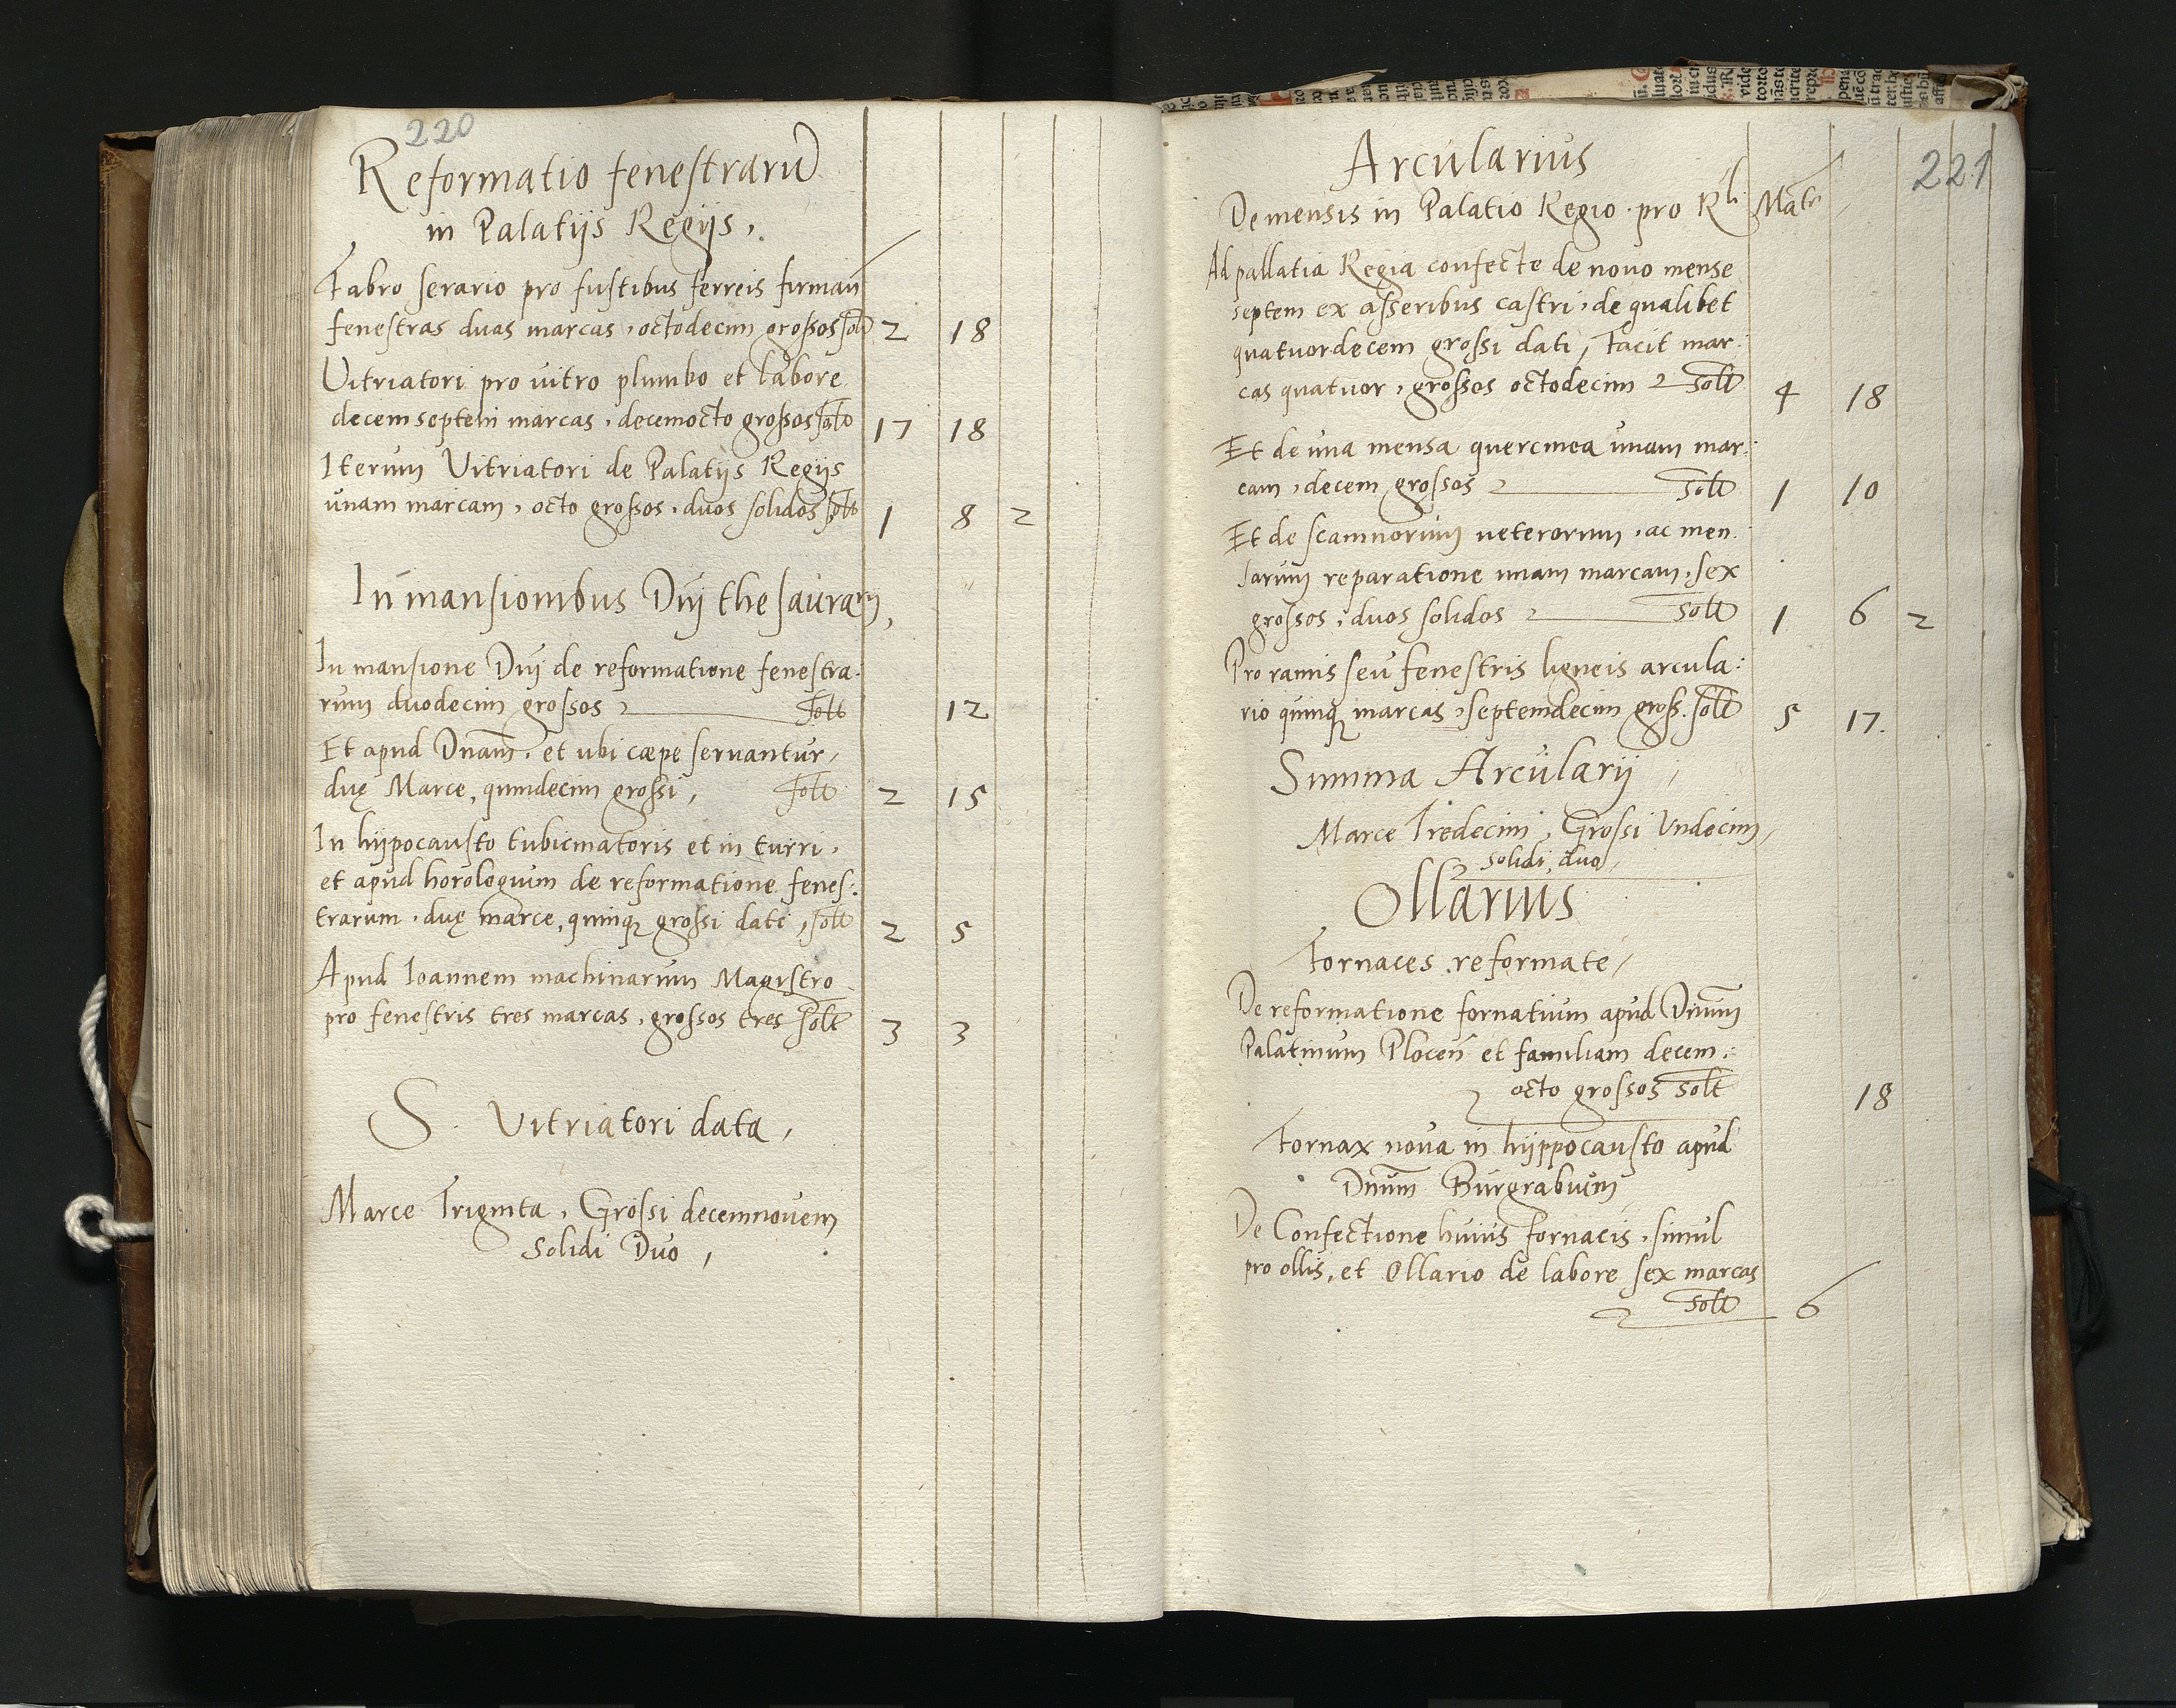 220
Reformatio fenestraru
in Palatijs Regijs,
Fabro serario pro fustibus ferreis firman
fenestras duas marcas, octodecim grossos solt 2 18
Vitriatori pro vitro plumbo et labore
decemseptem marcas, decemocto grossos solt 17 18
Iterum Vitriatori de Palatijs Regijs
unam marcam, octo grossos, duos solidos solt 1 8 2
In mansionibus Dni thesaurarij,
In mansione Dni de reformatione fenestra:
rum duodecim grossos solt 12
Et apud Dnam, et ubi cæpe servantur,
duę Marce, quindecim grossi, solt 2 15
In hypocausto tubicinatoris et in turri,
et apud horologium de reformatione fenes:
trarum, duę marce, quinque grossi dati, solt 2 5
Apud Ioannem machinarum Magistro
pro fenestris tres marcas, grossos tres solt 3 3
S. Vitriatori data,
Marce Triginta, Grossi decemnovem
Solidi Duo,
221
Arcularius
De mensis in Palatio Regio pro Rli Mate
Ad pallatia Regia confecte de novo mense
septem ex asseribus castri, de qualibet
quatuordecem grossi dati, Facit mar:
cas quatuor, grossos octodecim solt 4 18
Et de una mensa quercinea unam mar:
cam, decem grossos solt 1 10
Et de scamnorum veterorum, ac men:
sarum reparatione unam marcam, sex
grossos, duos solidos solt 1 6 2
Pro ramis seu fenestris ligneis arcula:
rio quinque marcas, septemdecim gross. solt 5 17.
Summa Arcularij
Marce Tredecim, Grossi Undecim,
Solidi, duo,
Ollarius
Fornaces reformate,
De reformatione fornatium apud Dnum
Palatinum Plocen et familiam decem:
octo grossos solt 18
Fornax nova in hyppocausto apud
Dnum Burgrabium
De Confectione huius fornacis, simul
pro ollis, et Ollario de labore sex marcas
solt 6